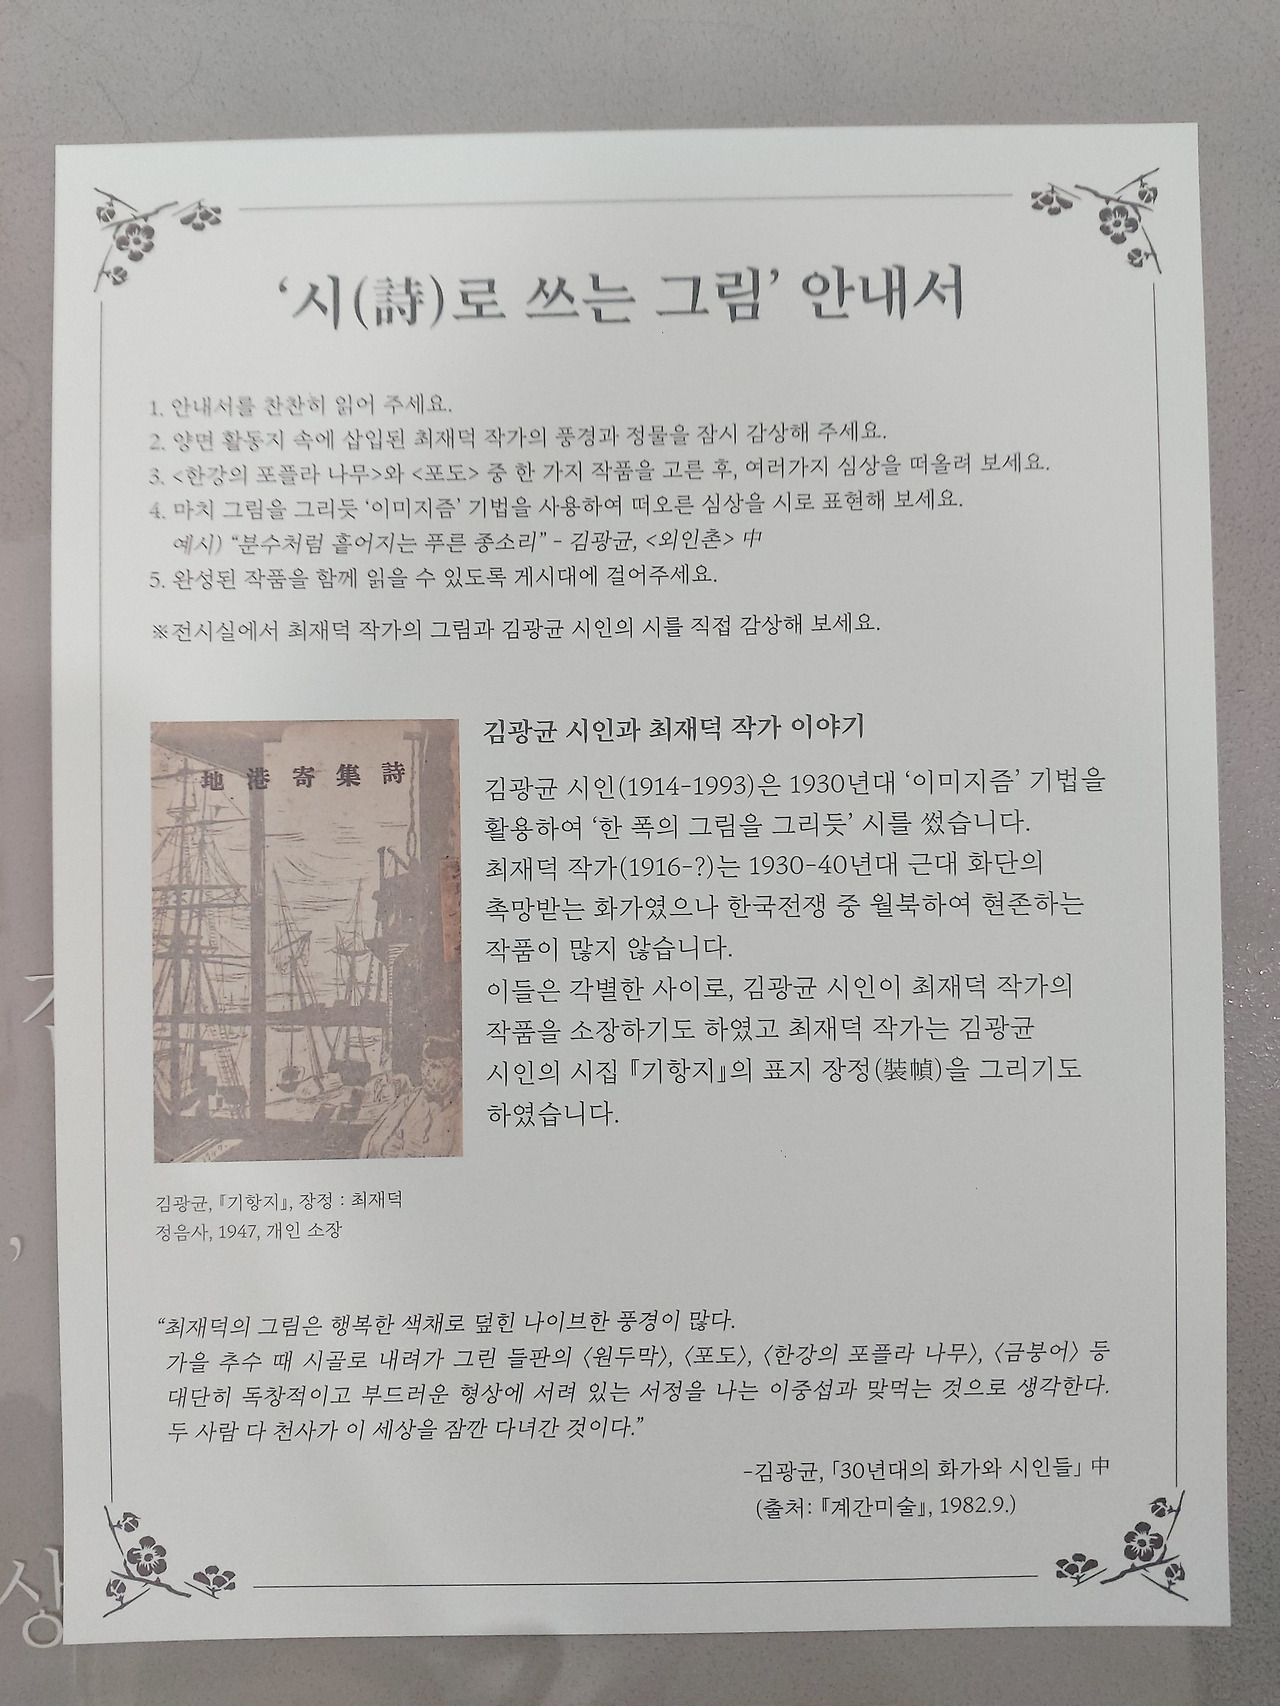 ‘시(詩)로 쓰는 그림’ 안내서
1. 안내서를 찬찬히 읽어 주세요.
2. 양면 활동지 속에 삽입된 최재덕 작가의 풍경과 정물을 잠시 감상해 주세요.
3. <한강의 포플라 나무>와 <포도> 중 한 가지 작품을 고른 후, 여러가지 심상을 떠올려 보세요.
4. 마치 그림을 그리듯 ‘이미지즘’ 기법을 사용하여 떠오른 심상을 시로 표현해 보세요.
예시) “분수처럼 흩어지는 푸른 종소리” - 김광균, <외인촌> 中
5. 완성된 작품을 함께 읽을 수 있도록 게시대에 걸어주세요.
※전시실에서 최재덕 작가의 그림과 김광균 시인의 시를 직접 감상해 보세요.
地港寄集詩
김광균 시인과 최재덕 작가 이야기
김광균 시인(1914-1993)은 1930년대 ‘이미지즘’ 기법을
활용하여 ‘한 폭의 그림을 그리듯’ 시를 썼습니다.
최재덕 작가(1916-?)는 1930-40년대 근대 화단의
촉망받는 화가였으나 한국전쟁 중 월북하여 현존하는
작품이 많지 않습니다.
이들은 각별한 사이로, 김광균 시인이 최재덕 작가의
작품을 소장하기도 하였고 최재덕 작가는 김광균
시인의 시집 『기항지』의 표지 장정(裝幀)을 그리기도
하였습니다.
김광균, 『기항지』, 장정 : 최재덕
정음사, 1947, 개인 소장
“최재덕의 그림은 행복한 색채로 덮힌 나이브한 풍경이 많다.
가을 추수 때 시골로 내려가 그린 들판의 〈원두막〉, 〈포도〉, 〈한강의 포플라 나무〉, 〈금붕어〉 등
대단히 독창적이고 부드러운 형상에 서려 있는 서정을 나는 이중섭과 맞먹는 것으로 생각한다.
두 사람 다 천사가 이 세상을 잠깐 다녀간 것이다.”
-김광균, 「30년대의 화가와 시인들」 中
(출처: 『계간미술』, 1982.9.)
상